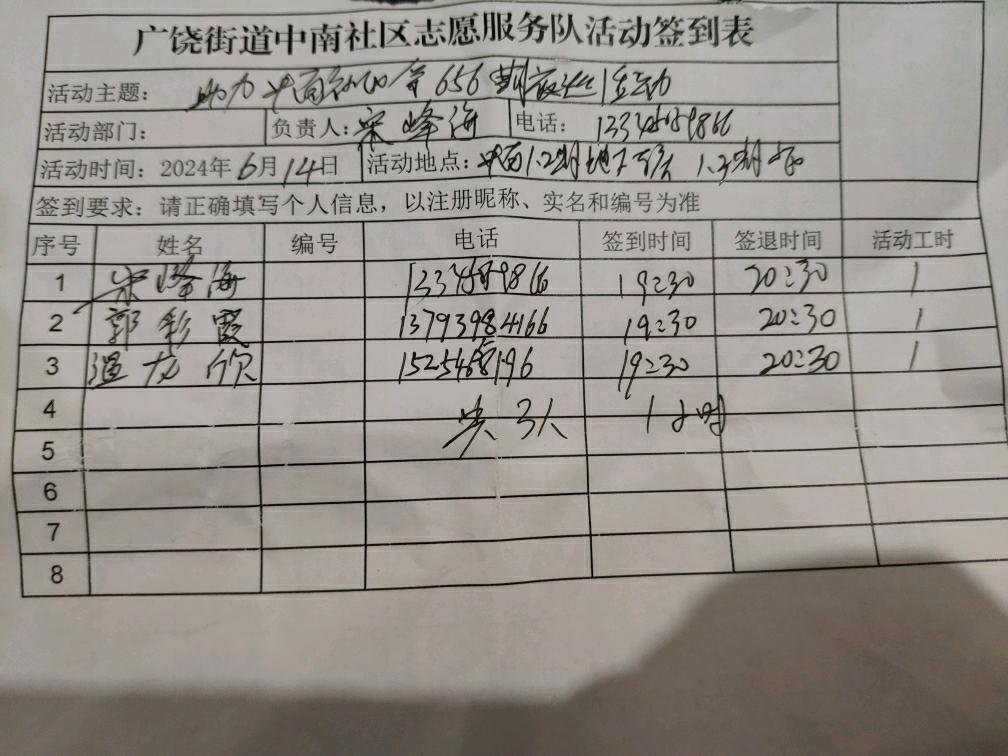 广饶街道中南社区志愿服务队活动签到表
活动主题: 助力中南 第656期夜巡活动
活动部门: 负责人: 宋峰海 电话:
活动时间: 2024年6月14日 活动地点: 1.2期地下
签到要求: 请正确填写个人信息，以注册昵称、实名和编号为准
序号 姓名 编号 电话 签到时间 签退时间 活动工时
1 宋峰海 19:30 20:30 1
2 郭彩霞 13793984166 19:30 20:30 1
3 温龙欣 19:30 20:30 1
4 共3人 1小时
5
6
7
8